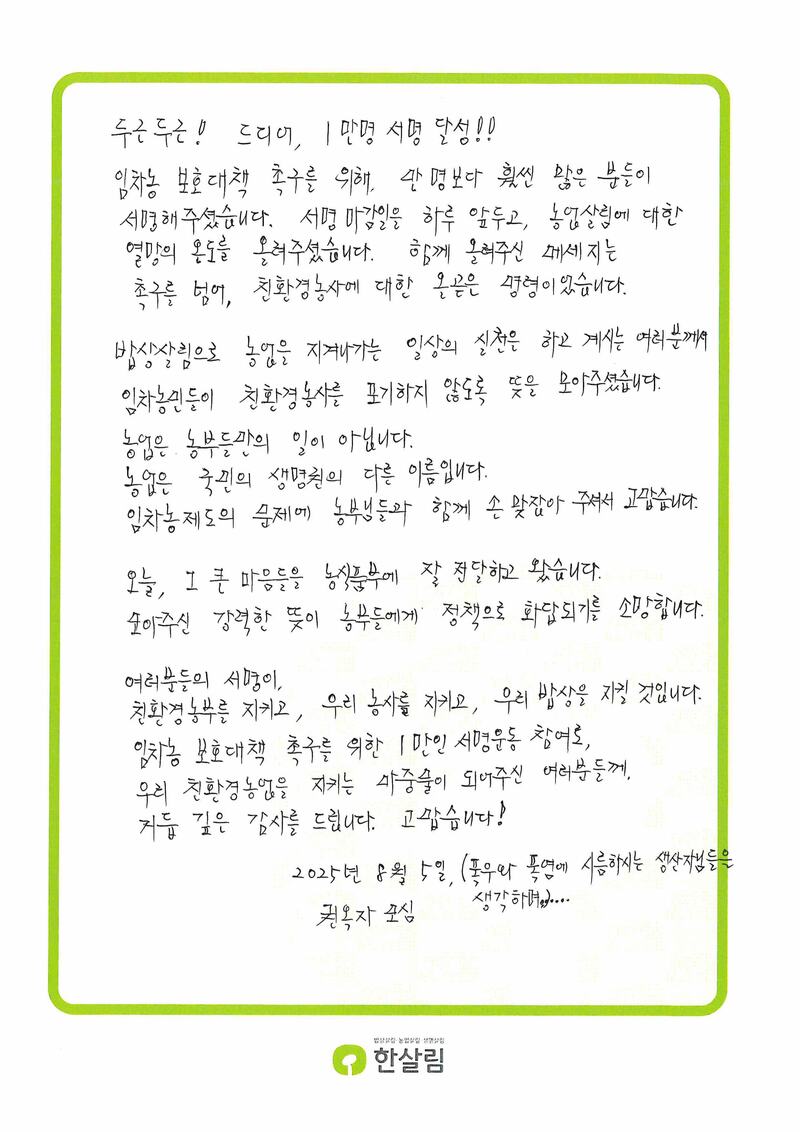 두근두근! 드디어, 1만명 서명 달성!!
임차농 보호대책 촉구를 위해, 만 명보다 훨씬 많은 분들이
서명해주셨습니다. 서명 마감일을 하루 앞두고, 농업살림에 대한
열망의 온도를 올려주셨습니다. 함께 올려주신 메세지는
촉구를 넘어, 친환경농사에 대한 올곧은 명령이었습니다.
밥상살림으로 농업을 지켜나가는 일상의 실천은 하고 계시는 여러분께서
임차농민들이 친환경농사를 포기하지 않도록 뜻을 모아주셨습니다.
농업은 농부들만의 일이 아닙니다.
농업은 국민의 생명권의 다른 이름입니다.
임차농제도의 문제에 농부님들과 함께 손 맞잡아 주셔서 고맙습니다.
오늘, 그 큰 마음들을 농식품부에 잘 전달하고 왔습니다.
모아주신 강력한 뜻이 농부들에게 정책으로 화답되기를 소망합니다.
여러분들의 서명이,
친환경농부를 지키고, 우리 농사를 지키고, 우리 밥상을 지킬 것입니다.
임차농 보호대책 촉구를 위한 1만인 서명운동 참여로,
우리 친환경농업을 지키는 마중물이 되어주신 여러분들께,
거듭 깊은 감사를 드립니다. 고맙습니다!
2025년 8월 5일, (폭우와 폭염에 시름하시는 생산자님들을
생각하며,)....
권옥자 모심
밥상살림 농업살림 생명살림
한살림